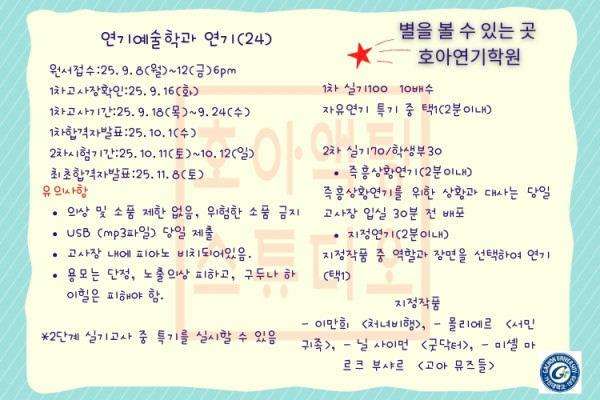 연기예술학과 연기(24)
별을 볼 수 있는 곳
호아연기학원
원서접수:25. 9. 8(월)~12(금)6pm
1차고사장확인:25. 9.16(화)
1차고사기간:25. 9.18(목)~9.24(수)
1차합격자발표:25. 10.1(수)
2차시험기간:25. 10. 11(토)~10.12(일)
최초합격자발표:25. 11. 8(토)
유의사항
• 의상 및 소품 제한 없음, 위험한 소품 금지
• USB (mp3파일) 당일 제출
• 고사장 내에 피아노 비치되어있음.
• 용모는 단정, 노출의상 피하고, 구두나 하
이힐은 피해야 함.
*2단계 실기고사 중 특기를 실시할 수 있음
1차 실기100 10배수
자유연기 특기 중 택1(2분이내)
2차 실기70/학생부30
• 즉흥상황연기(2분이내)
즉흥상황연기를 위한 상황과 대사는 당일
고사장 입실 30분 전 배포
• 지정연기(2분이내)
지정작품 중 역할과 장면을 선택하여 연기
(택1)
지정작품
- 이만희 <처녀비행>, - 몰리에르 <서민
귀족>, - 닐 사이먼 <굿닥터>, - 미셸 마
르크 부샤르 <고아 뮤즈들>
호아액팅
스튜디오
GACHON UNIVERSITY